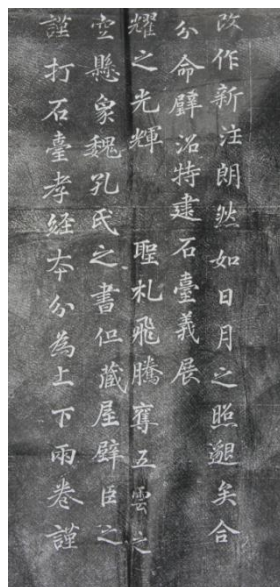 改作新注朗然如日月之照邈矣合
分命壁沼特建石臺義展
耀之光輝 聖札飛騰奪五雲之
空懸象魏孔氏之書但藏屋壁臣之
謹打石臺孝経本分為上下兩卷謹